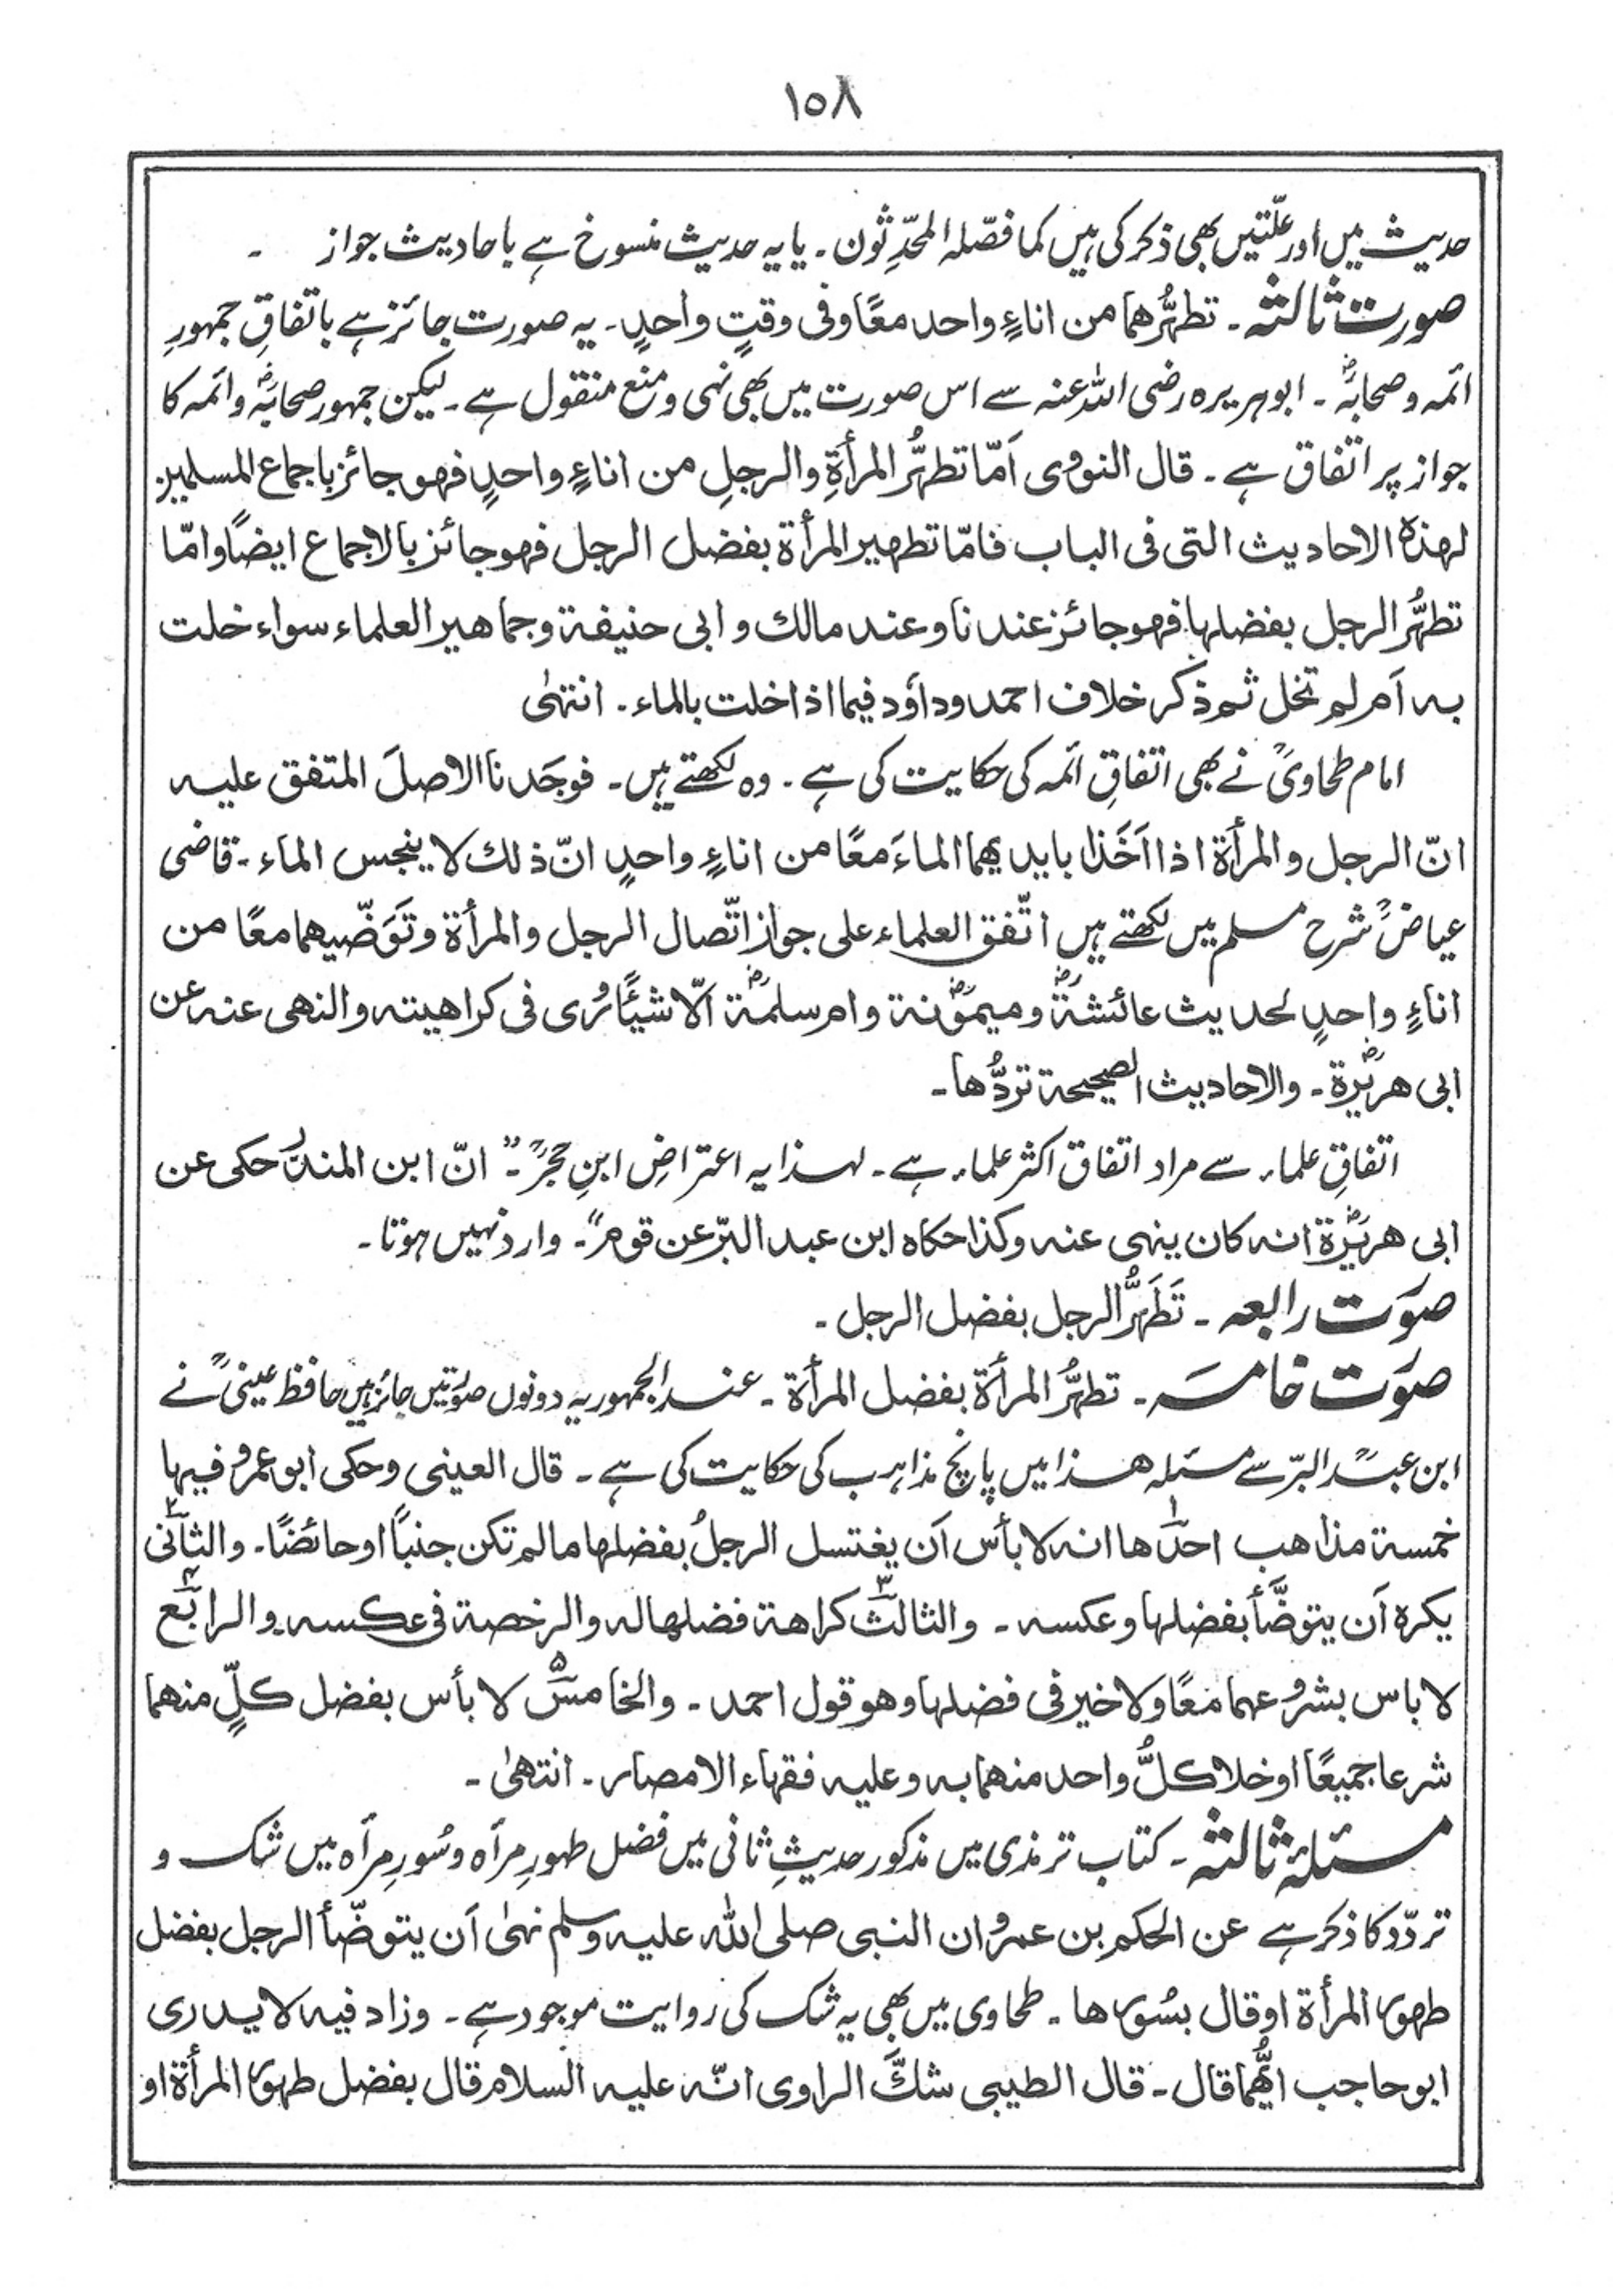 ۱۵۸
حدیث میں اور علّتیں بھی ذکر کی ہیں کما فصّلہ المحدّثون۔ یا یہ حدیث منسوخ ہے باحادیث جواز ۔
صورت ثالثہ۔ تطہُّرھما من اناءٍ واحد معًا وفی وقتٍ واحدٍ۔ یہ صورت جائز ہے باتفاقِ جمہورِ
ائمہ وصحابہؓ۔ ابوہریرہ رضی اللہ عنہ سے اس صورت میں بھی نہی و منع منقول ہے۔ لیکن جمہور صحابہؓ و ائمہ کا
جواز پر اتفاق ہے۔ قال النووی اَمّا تطہُّر المرأةِ والرجلِ من اناءٍ واحدٍ فھو جائز باجماع المسلمین
لھذہ الاحادیث التی فی الباب فامّا تطھیر المرأة بفضل الرجل فھو جائز بالاجماع ایضًا وامّا
تطہُّر الرجل بفضلھا فھو جائز عندنا وعند مالك و ابی حنیفة وجماھیر العلماء سواء خلت
بہ اَم لم تخل ثم ذکر خلاف احمد وداؤد فیما اذا خلت بالماء۔ انتہٰی
امام طحاویؒ نے بھی اتفاقِ ائمہ کی حکایت کی ہے۔ وہ لکھتے ہیں۔ فوجَدنا الاصلَ المتفق علیہ
انّ الرجل والمرأة اذا اَخَذا بایدیھما الماءَ معًا من اناءٍ واحدٍ انّ ذلك لا ینجس الماء۔ قاضی
عیاضؒ شرح مسلم میں لکھتے ہیں اتّفق العلماء علی جواز اتّصال الرجل والمرأة وتَوَضّیھما معًا من
اناءٍ واحدٍ لحدیث عائشةؓ ومیمونةؓ وام سلمةؓ الّا شیئًا رُوی فی کراھیتہ والنھی عنہ عن
ابی ھریرةؓ۔ والاحادیث الصحیحة تردُّھا۔
اتفاقِ علماء سے مراد اتفاق اکثر علماء ہے۔ لہذا یہ اعتراضِ ابنِ حجرؒ۔ " انّ ابن المنذر حکی عن
ابی ھریرةؓ انہ کان ینہی عنہ وکذا حکاہ ابن عبد البرّ عن قوم"۔ وارد نہیں ہوتا۔
صورت رابعہ۔ تَطَہُّر الرجل بفضل الرجل۔
صورت خامسہ۔ تطہُّر المرأة بفضل المرأة۔ عند الجمہور یہ دونوں صورتیں جائز ہیں حافظ عینیؒ نے
ابن عبد البرّؒ سے مسئلہ ھذا میں پانچ مذاہب کی حکایت کی ہے۔ قال العینی وحکی ابو عمرو فیھا
خمسة مذاھب احدھا۱ انہ لا بأس اَن یغتسل الرجلُ بفضلھا مالم تکن جنبًا اوحائضًا۔ والثانی۲
یکرہ اَن یتوضّأ بفضلھا وعکسہ۔ والثالث۳ کراھة فضلھا لہ والرخصة فی عکسہ والرابع۴
لا باس بشروعھما معًا ولا خیر فی فضلھا وھو قول احمد۔ والخامس۵ لا بأس بفضل کلٍّ منھما
شرعا جمیعًا اوخلا کلُّ واحد منھما بہ وعلیہ فقھاء الامصار۔ انتھٰی۔
مسئلۂ ثالثہ۔ کتاب ترمذی میں مذکور حدیثِ ثانی میں فضل طہورِ مرأہ وسُورِ مرأہ میں شک و
تردّد کا ذکر ہے عن الحکم بن عمرو ان النبی صلی اللہ علیہ وسلم نہٰی اَن یتوضّأ الرجل بفضل
طھور المرأة اوقال بسُورھا۔ طحاوی میں بھی یہ شک کی روایت موجود ہے۔ وزاد فیہ لا یدری
ابو حاجب ایُّھما قال۔ قال الطیبی شكَّ الراوی انّہ علیہ السلام قال بفضل طھور المرأة او